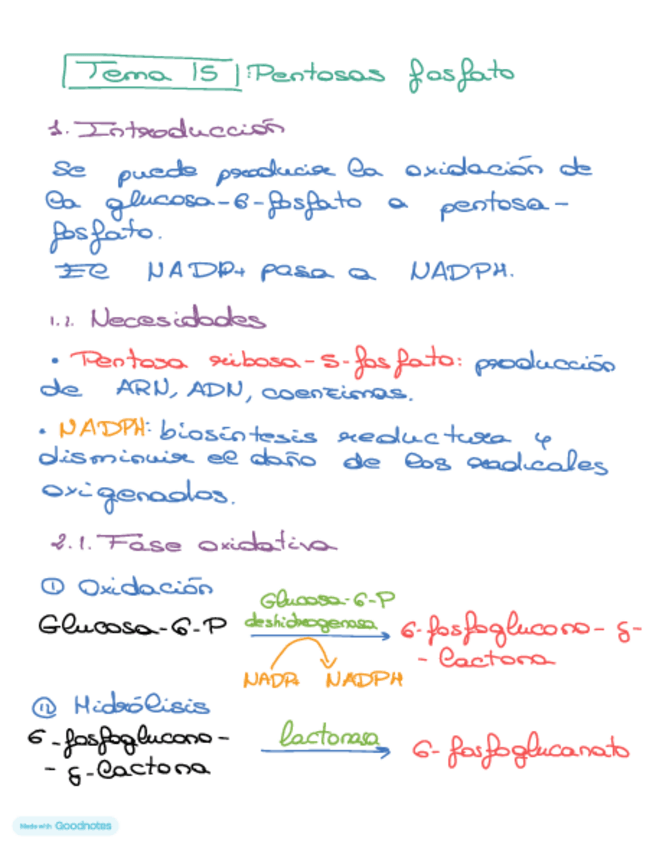 Tema 15 | Pentosas fosfato
1. Introducción
Se puede producir la oxidación de
la glucosa-6-fosfato a pentosa-
fosfato.
El NADP+ pasa a NADPH.
1.2. Necesidades
• Pentosa ribosa-5-fosfato: producción
de ARN, ADN, coenzimas.
• NADPH: biosíntesis reductura y
disminuir el daño de los radicales
oxigenados.
2.1. Fase oxidativa
① Oxidación
Glucosa-6-P
deshidrogenasa
Glucosa-6-P
6-fosfoglucono-δ-
-lactona
NADP+ NADPH
⑪ Hidrólisis
6-fosfoglucono-
-δ-lactona
lactonasa
6-fosfoglucanato
Made with Goodnotes